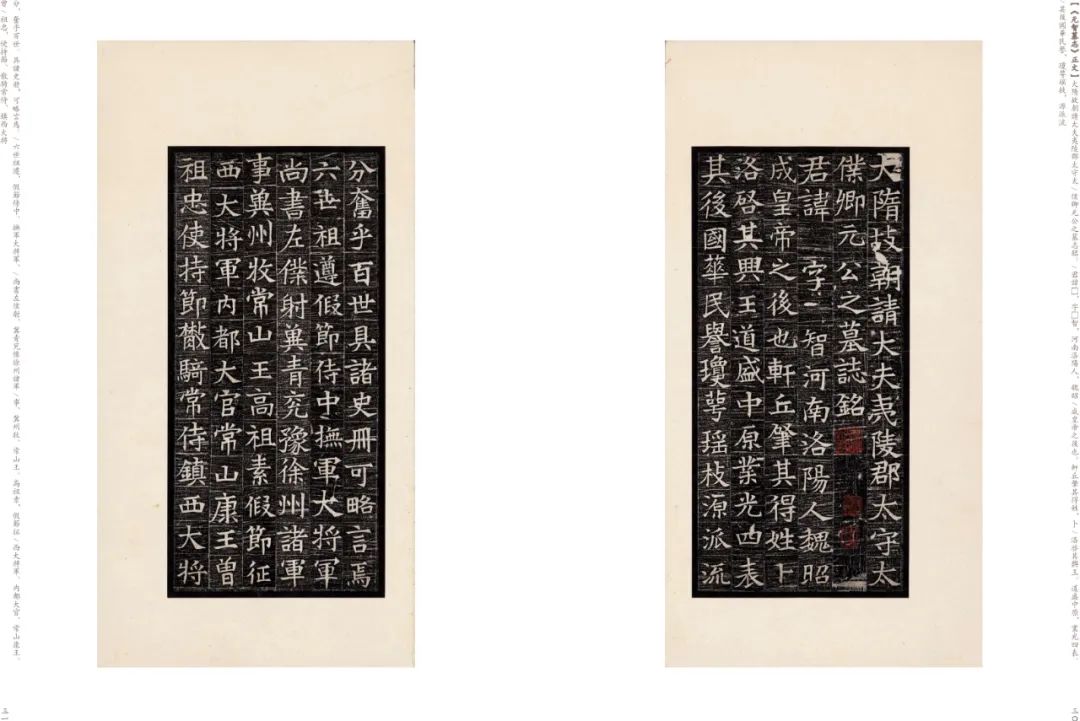 【《元智墓志》正文】大隋故朝請大夫夷陵郡太守太/僕卿元公之墓志銘。/君諱□,字□智,河南洛陽人。魏昭/成皇帝之後也。軒丘肇其得姓,卜/洛啓其興王。道盛中原,業光四表。
/其後國華民譽,瓊萼瑤枝,源派流
大隋故朝請大夫夷陵郡太守太
僕卿元公之墓誌銘
君諱 字一智河南洛陽人魏昭
成皇帝之後也軒丘肇其得姓卜
洛啓其興王道盛中原業光四表
其後國華民譽瓊萼瑤枝源派流
三〇
分奮乎百世具諸史冊可略言焉
六世祖遵假節侍中撫軍大將軍
尚書左僕射冀青兗豫徐州諸軍
事冀州牧常山王高祖素假節征
西大將軍內都大官常山康王曾
祖忠使持節散騎常侍鎮西大將
分,奮乎百世,具諸史冊,可略言焉。/六世祖遵,假節侍中、撫軍大將軍、/尚書左僕射、冀青兗豫徐州諸軍/事、冀州牧、常山王。高祖素,假節征/西大將軍、內都大官、常山康王。
曾/祖忠,使持節、散騎常侍、鎮西大將
三一